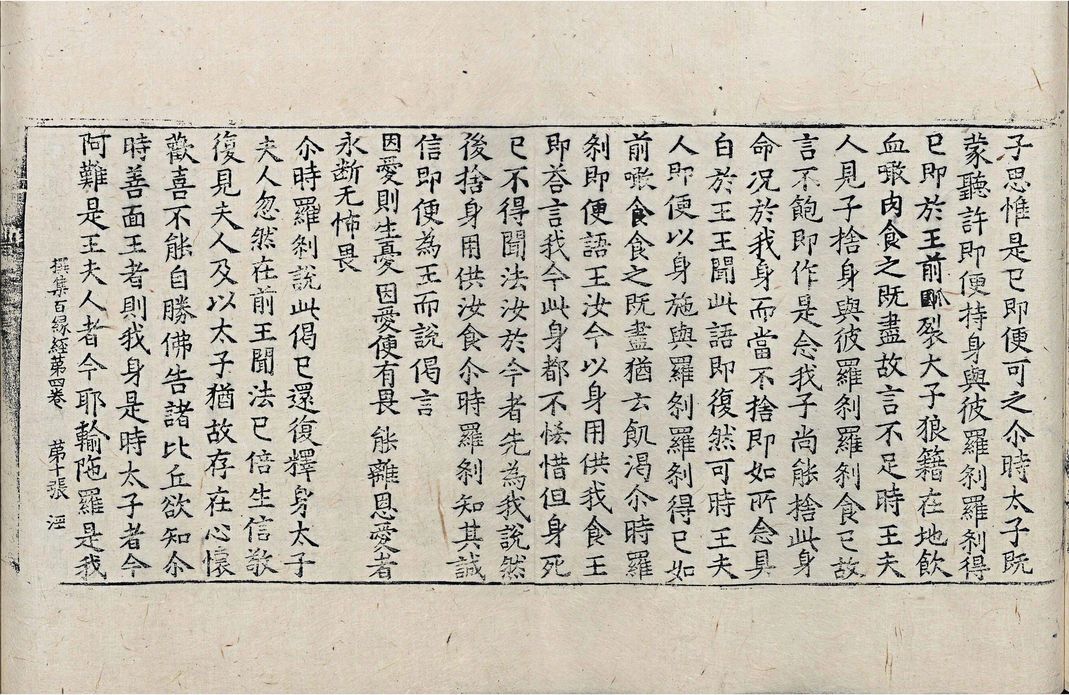 子思惟是已即便可之尒時太子既
蒙聽許即便持身與彼羅刹羅刹得
已即於王前𤔩裂大子狼籍在地飲
血噉肉食之既盡故言不足時王夫
人見子捨身與彼羅刹羅刹食已故
言不飽即作是念我子尚能捨此身
命况於我身而當不捨即如所念具
白於王王聞此語即復然可時王夫
人即便以身施與羅刹羅刹得已如
前噉食食之既盡猶云飢渴尒時羅
刹即便語王汝今以身用供我食王
即荅言我今此身都不恡惜但身死
已不得聞法汝於今者先為我說然
後捨身用供汝食尒時羅刹知其誠
信即便為王而說偈言
因愛則生憂因愛便有畏能離恩愛者
永断无怖畏
尒時羅刹說此偈已還復釋身太子
夫人忽然在前王聞法已倍生信敬
復見夫人及以太子猶故存在心懷
歡喜不能自勝佛告諸比丘欲知尒
時善面王者則我身是時太子者今
阿難是王夫人者今耶輸陁羅是我
撰集百緣經第四卷 第十張